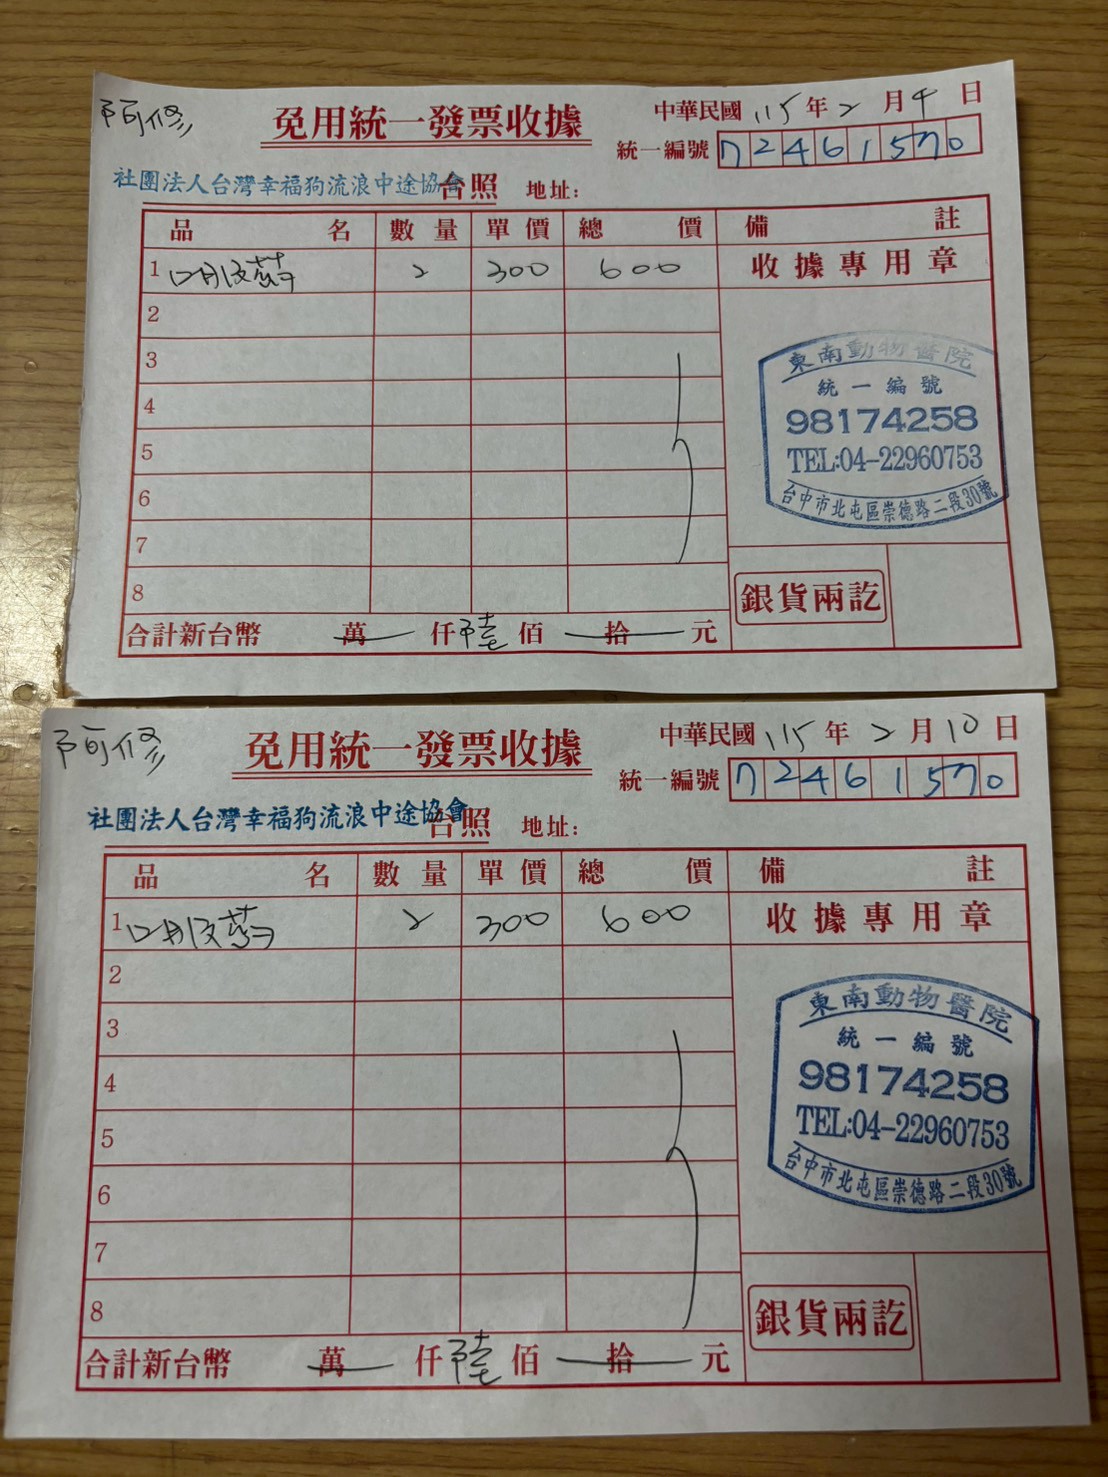 阿修
免用統一發票收據
中華民國 115 年 2 月 4 日
統一編號 72461570
社團法人台灣幸福狗流浪中途協會 台照 地址:
品名 數量 單價 總價 備註
1 口服葯 2 300 600 收據專用章
2
3
4
5
6
7
8
東南動物醫院
統一編號
98174258
TEL:04-22960753
台中市北屯區崇德路二段30號
銀貨兩訖
合計新台幣 萬 仟 陸 佰 拾 元
阿修
免用統一發票收據
中華民國 115 年 2 月 10 日
統一編號 72461570
社團法人台灣幸福狗流浪中途協會 台照 地址:
品名 數量 單價 總價 備註
1 口服葯 2 300 600 收據專用章
2
3
4
5
6
7
8
東南動物醫院
統一編號
98174258
TEL:04-22960753
台中市北屯區崇德路二段30號
銀貨兩訖
合計新台幣 萬 仟 陸 佰 拾 元